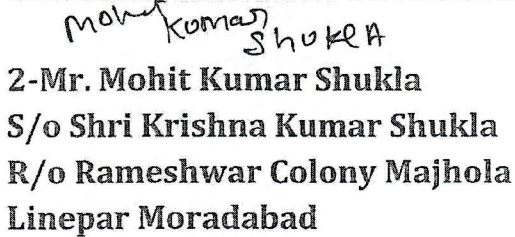 Mohit Kumar Shukla
2-Mr. Mohit Kumar Shukla
S/o Shri Krishna Kumar Shukla
R/o Rameshwar Colony Majhola
Linepar Moradabad